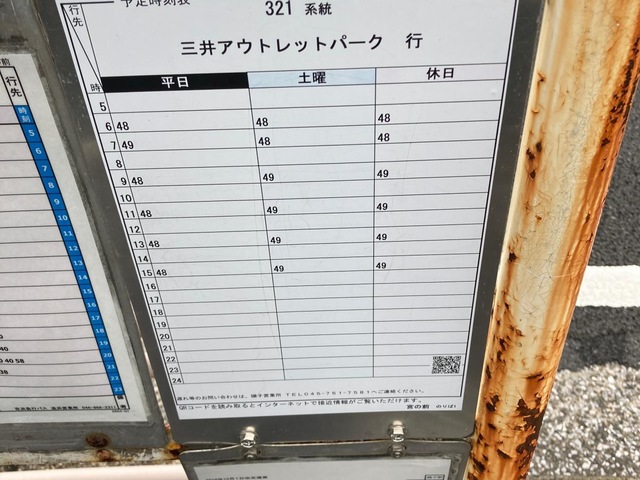 予定時刻表
321 系統
行先
三井アウトレットパーク 行
時
平日 土曜 休日
5
6 48 48 48
7 49 48 48
8
9 48 49 49
10
11 48 49 49
12
13 48 49 49
14
15 48 49 49
17
18
19
20
21
22
23
24
遅れ等のお問い合わせは、磯子営業所 TEL045-751-7581へご連絡ください。
QRコードを読み取るとインターネットで接近情報がご覧いただけます。
宮の前 のりば1
行先
時刻
5
6
7
8
9
10
11
12
13
14
15
16
17
18
19
20
21
22
23
40 58
38